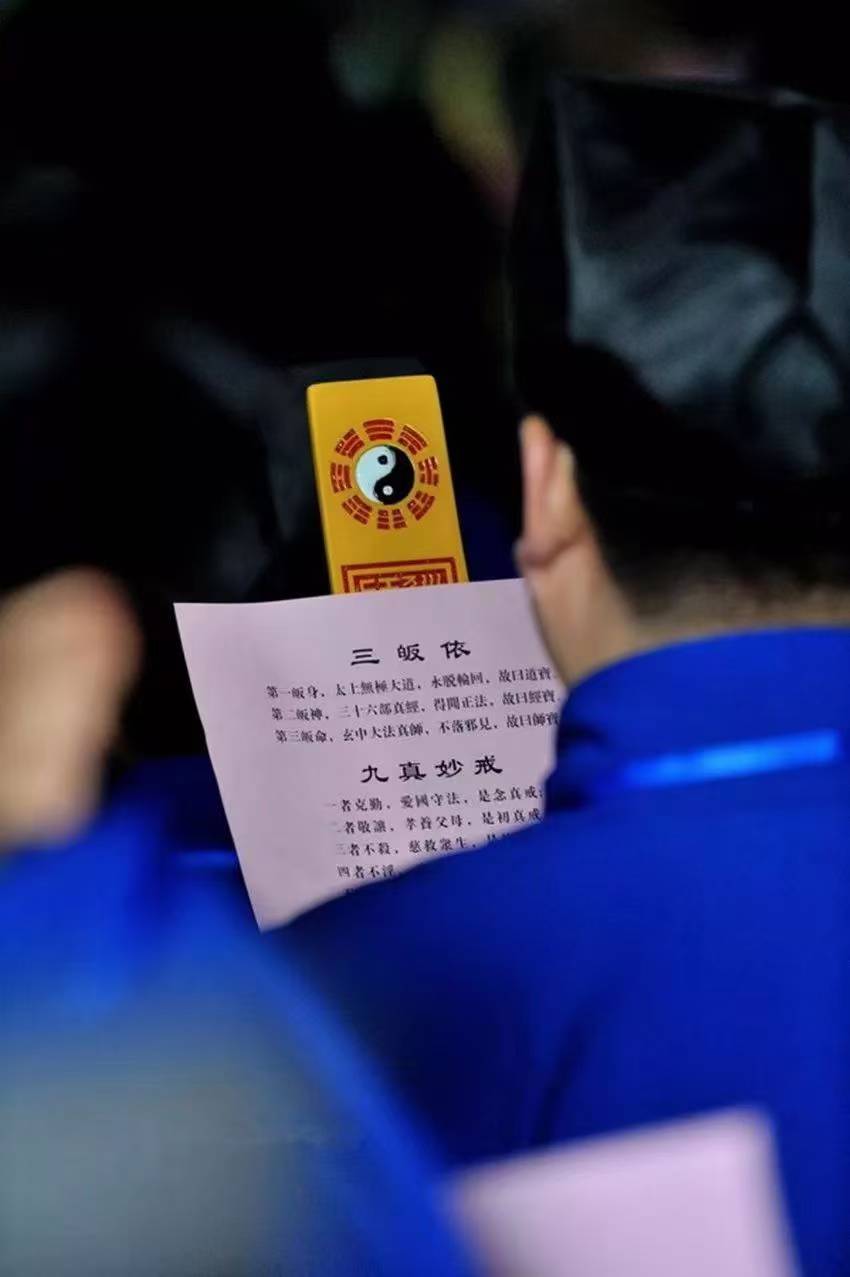 三皈依
第一皈身，太上無極大道，永脱輪回，故曰道寶
第二皈神，三十六部真經，得聞正法，故曰經寶
第三皈命，玄中大法真師，不落邪見，故曰師寶
九真妙戒
一者克勤，愛國守法，是念真戒；
二者敬讓，孝養父母，是初真戒
三者不殺，慈救衆生，是
四者不淫，